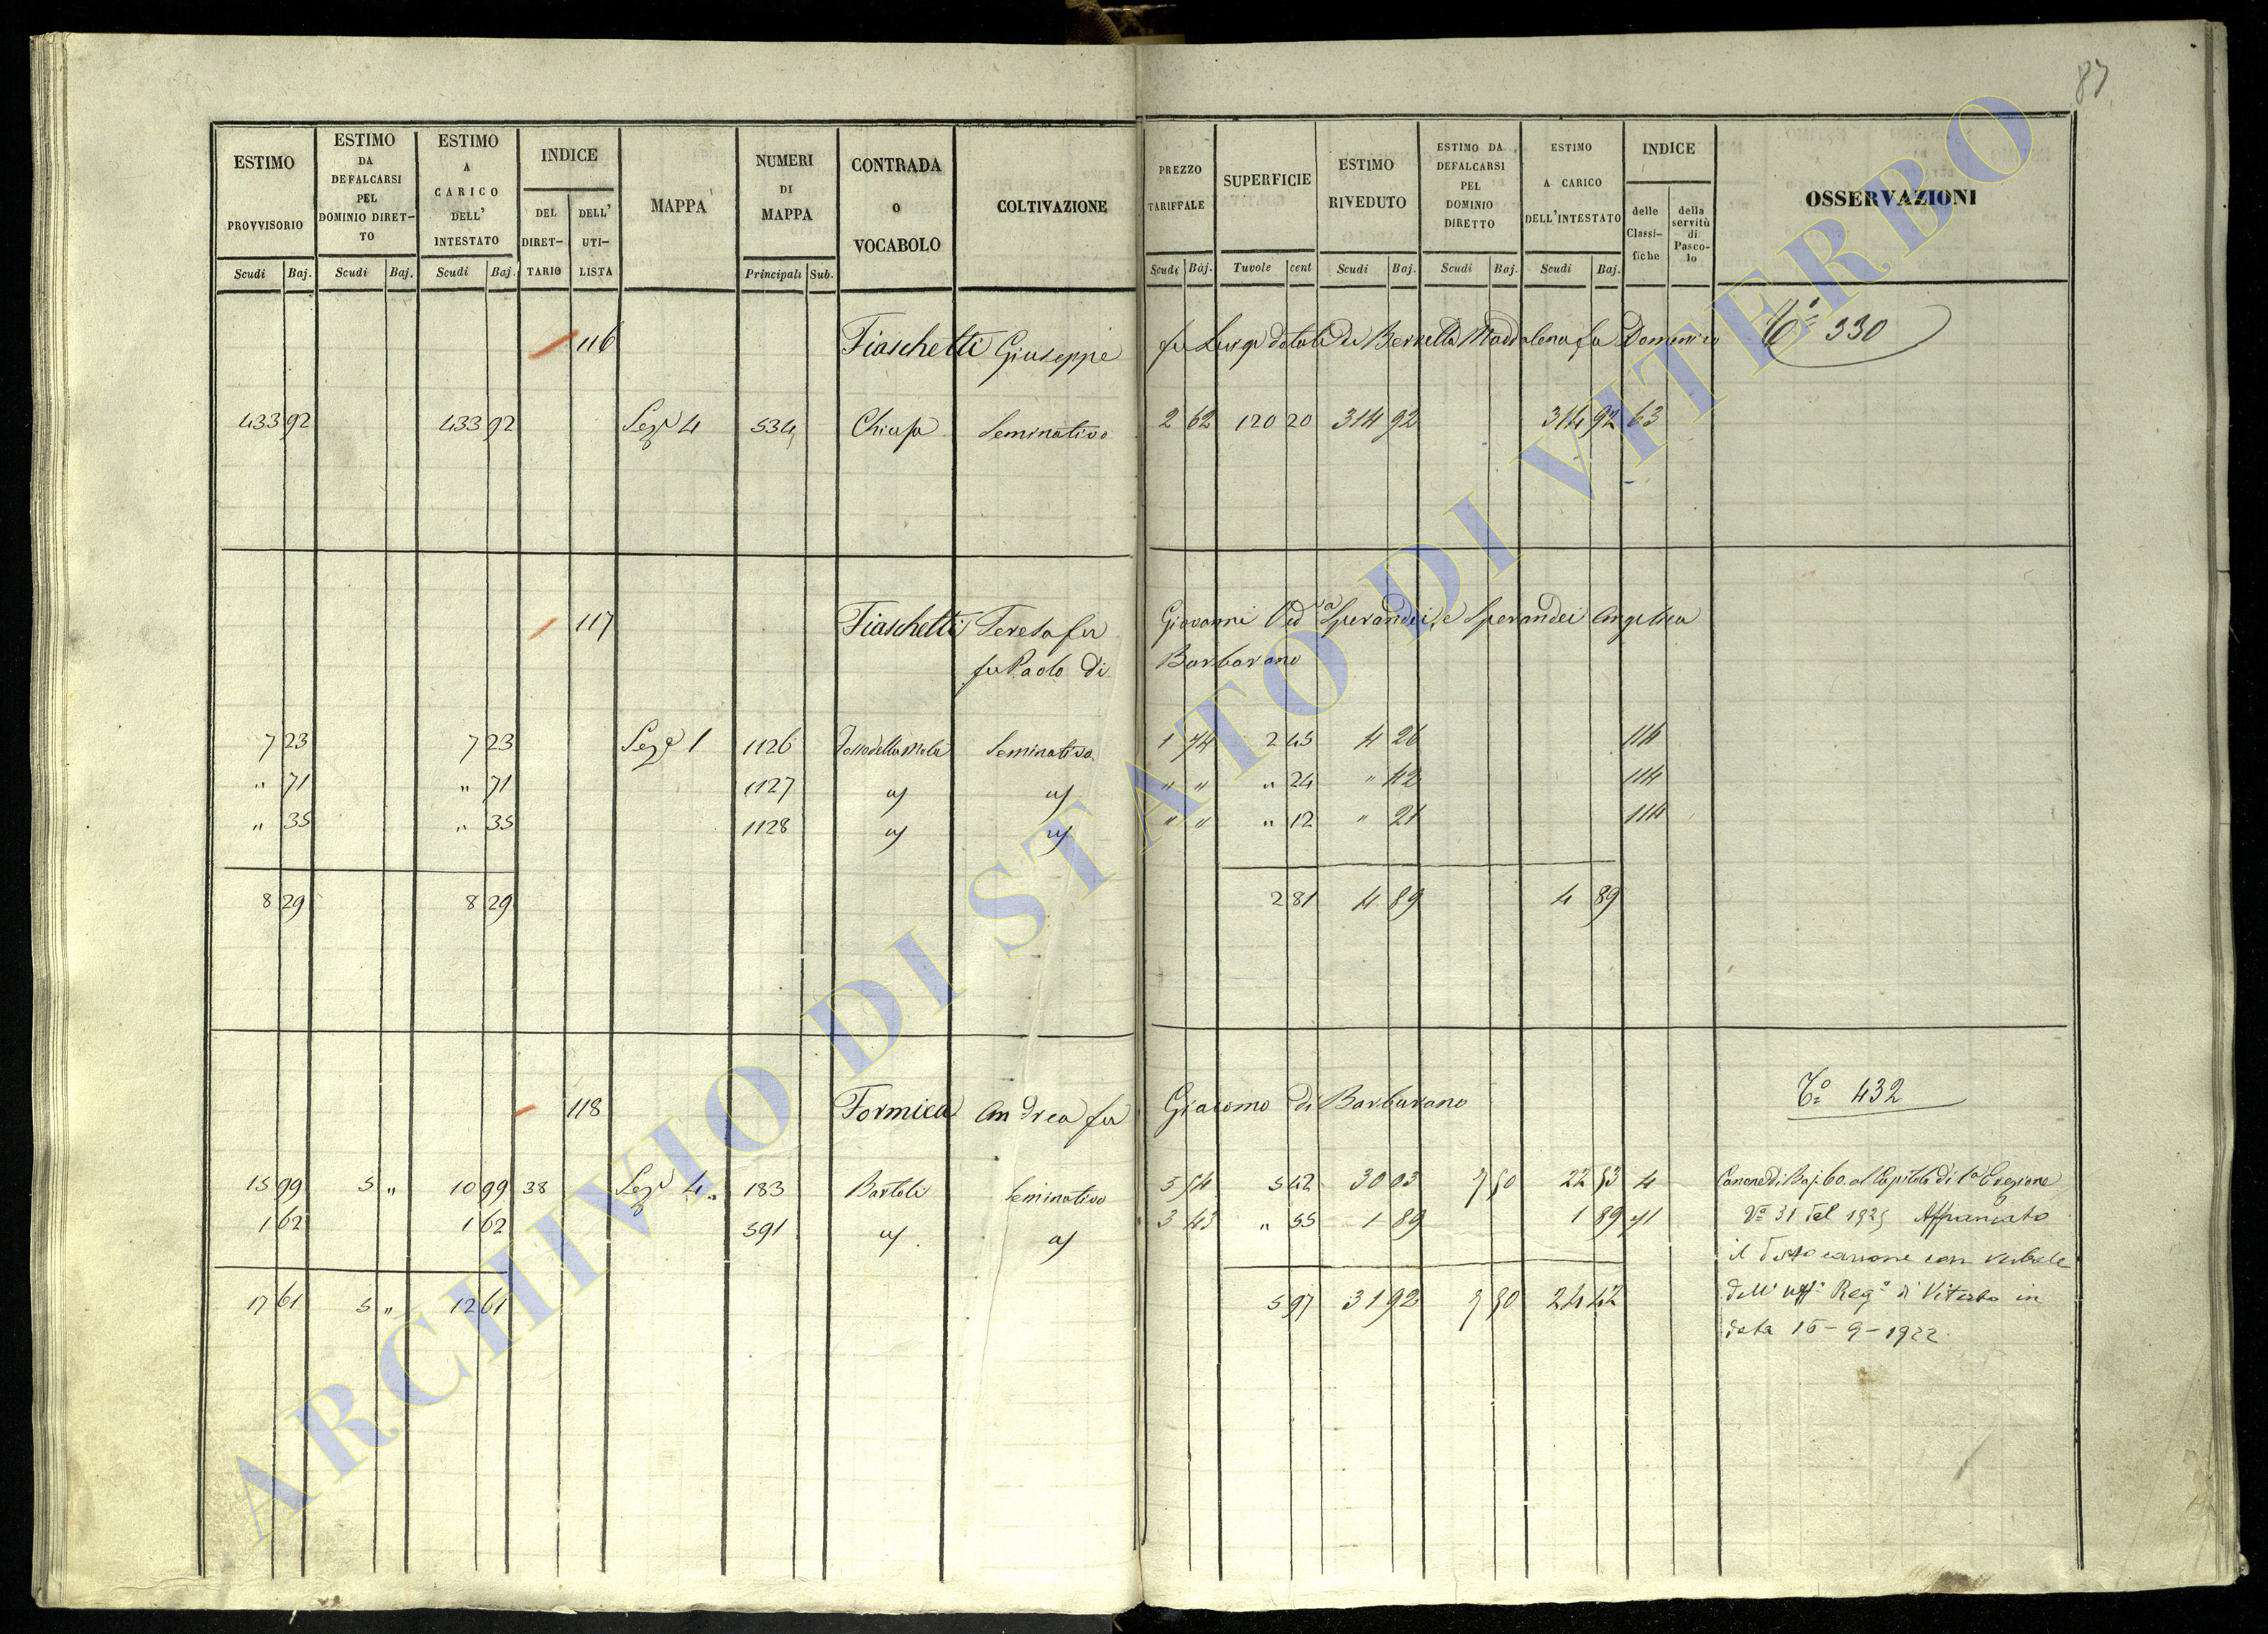 87
ESTIMO PROVVISORIO Scudi Baj. | ESTIMO DA DEFALCARSI PEL DOMINIO DIRET-TO Scudi Baj. | ESTIMO A CARICO DELL' INTESTATO Scudi Baj. | INDICE DEL DIRET-TARIO DELL' UTI-LISTA | MAPPA | NUMERI DI MAPPA Principali Sub. | CONTRADA O VOCABOLO | COLTIVAZIONE | PREZZO TARIFFALE Scudi Baj. | SUPERFICIE Tavole cent | ESTIMO RIVEDUTO Scudi Baj. | ESTIMO DA DEFALCARSI PEL DOMINIO DIRETTO Scudi Baj. | ESTIMO A CARICO DELL'INTESTATO Scudi Baj. | INDICE delle Classi-fiche della servitù di Pasco-lo | OSSERVAZIONI
116 Fiaschetti Giuseppe fu Luigi dotali di Maddalena fu Domenico 330
433 92 433 92 Sez. 4 534 Chiusa Seminativo 2 62 120 20 314 92 314 92 63
117 Fiaschetti Teresa fu Giovanni Ved.va Sperandei, e Sperandei Angelica
fu Paolo di Barbarano
7 23 7 23 Sez.e 1 1126 Fosso della Mola Seminativo 1 74 2 45 4 26 114
" 71 " 71 1127 " " " 24 " 42 114
" 35 " 35 1128 " " " 12 " 21 114
8 29 8 29 2 81 4 89 4 89
118 Formica Andrea fu Giacomo di Barbarano 432
15 99 5 " 10 99 38 Sez. 4 183 Bartoli Seminativo 5 54 5 42 30 03 7 50 22 53 4 Canone di Baj. 60 al Capitolo di
1 62 1 62 591 3 43 " 55 1 89 1 89 41 31 del Affrancato
il canone con verbale
17 61 5 " 12 61 5 97 31 92 7 50 24 42 dell' Uff. Reg. di Viterbo in
data 16-9-1922
ARCHIVIO DI STATO DI VITERBO